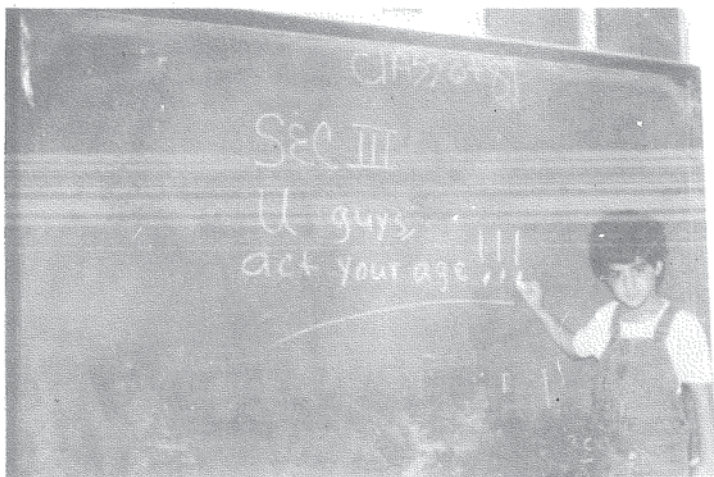 SEC III
U guys,
act your age !!!